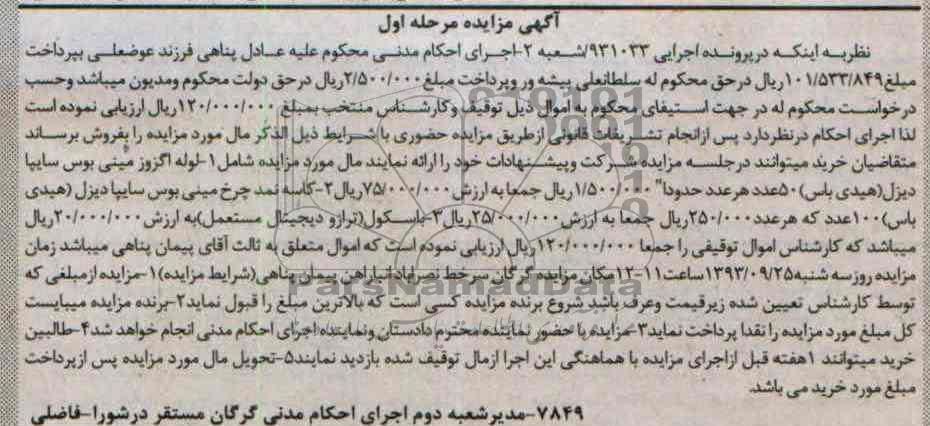 آگهی مزایده مرحله اول
نظربه اینکه درپرونده اجرایی ۹۳۱۰۳۳/شعبه ۲-اجرای احکام مدنی محکوم علیه عادل پناهی فرزند عوضعلی بپرداخت
مبلغ۱۰۱/۵۳۳/۸۴۹ریال درحق محکوم له سلطانعلی پیشه ور وپرداخت مبلغ۲/۵۰۰/۰۰۰ریال درحق دولت محکوم ومدیون میباشد وحسب
درخواست محکوم له در جهت استیفای محکوم به اموال ذیل توقیف وکارشناس منتخب بمبلغ ۱۲۰/۰۰۰/۰۰۰ریال ارزیابی نموده است
لذا اجرای احکام درنظردارد پس ازانجام تشریفات قانونی ازطریق مزایده حضوری با شرایط ذیل الذکر مال مورد مزایده را بفروش برساند
متقاضیان خرید میتوانند درجلسه مزایده شرکت وپیشنهادات خود را ارائه نمایند مال مورد مزایده شامل۱-لوله اگزوز مینی بوس سایپا
دیزل(هیدی باس)۵۰عدد هرعدد حدودا" ۱/۵۰۰/۰۰۰ریال جمعا به ارزش۷۵/۰۰۰/۰۰۰ریال۲-کاسه نمد چرخ مینی بوس سایپا دیزل (هیدی
باس)۱۰۰عدد که هرعدد۲۵۰/۰۰۰ریال جمعا به ارزش۲۵/۰۰۰/۰۰۰ریال۳-باسکول(ترازو دیجیتال مستعمل)به ارزش۲۰/۰۰۰/۰۰۰ریال
میباشد که کارشناس اموال توقیفی را جمعا ۱۲۰/۰۰۰/۰۰۰ریال ارزیابی نموده است که اموال متعلق به ثالث آقای پیمان پناهی میباشد زمان
مزایده روزسه شنبه۱۳۹۳/۰۹/۲۵ساعت۱۱-۱۲مکان مزایده گرگان سرخط نصراباد انبارآهن پیمان پناهی(شرایط مزایده)۱-مزایده ازمبلغی که
توسط کارشناس تعیین شده زیرقیمت وعرف باشد شروع برنده مزایده کسی است که بالاترین مبلغ را قبول نماید۲-برنده مزایده میبایست
کل مبلغ مورد مزایده را نقدا پرداخت نماید۳-مزایده با حضور نماینده محترم دادستان ونماینده اجرای احکام مدنی انجام خواهد شد۴-طالبین
خرید میتوانند ۱هفته قبل ازاجرای مزایده با هماهنگی این اجرا ازمال توقیف شده بازدید نمایند۵-تحویل مال مورد مزایده پس ازپرداخت
مبلغ مورد خرید می باشد.
۷۸۴۹-مدیرشعبه دوم اجرای احکام مدنی گرگان مستقر درشورا-فاضلی
ParsNamadData